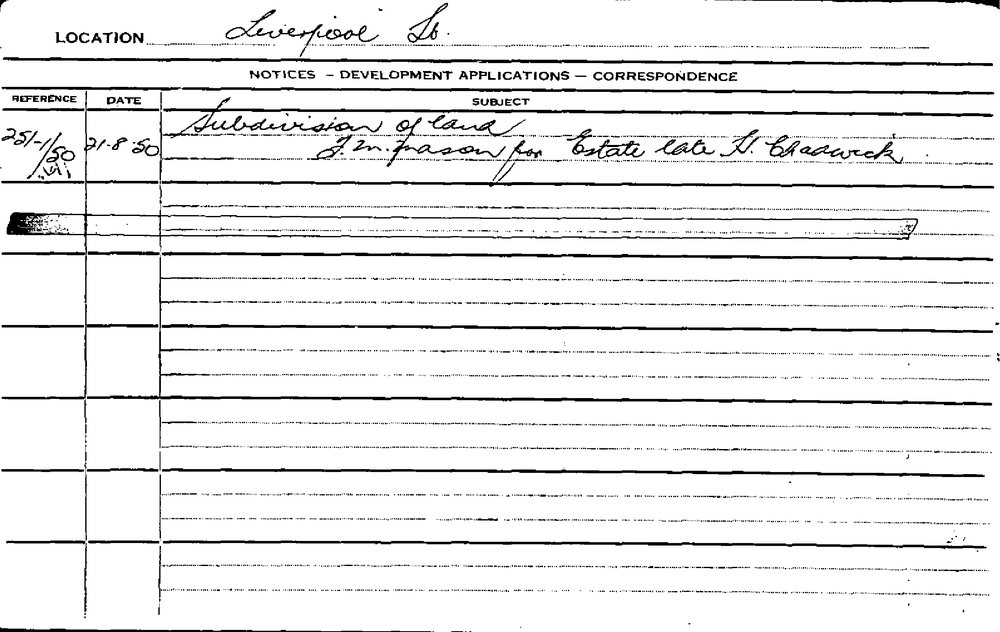 LOCATION Liverpool St.
NOTICES – DEVELOPMENT APPLICATIONS – CORRESPONDENCE
REFERENCE DATE SUBJECT
251-1/50 21·8·50 Subdivision of land
for Estate late H. Chadwick